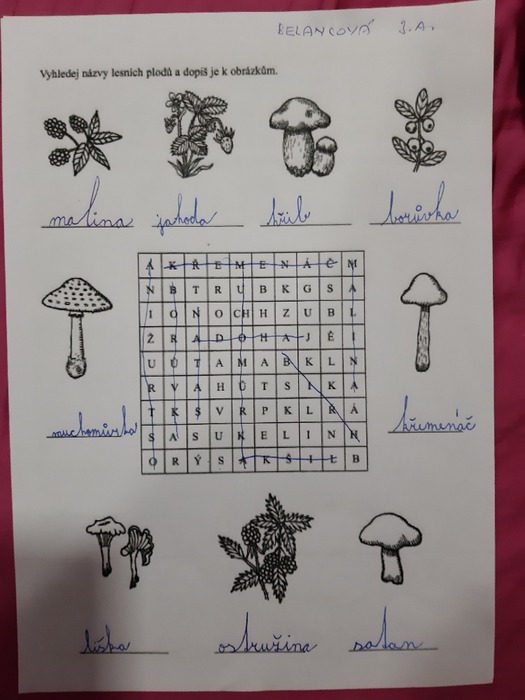 BELANCOVÁ 3.A.
Vyhledej názvy lesních plodů a dopiš je k obrázkům.
malina jahoda hřib borůvka
A K Ř E M E N Á Č M
N B T R U B K G S A
I O N O CH H Z U B L
Ž R A D O H A J Ě I
U Ů T A M A B K L N
R V A H Ů T S I K A
T K S V R P K L Ř Á
S A S U K E L I N H
O R Ý S A K Š I L B
muchomůrka křemenáč
liška ostružina satan